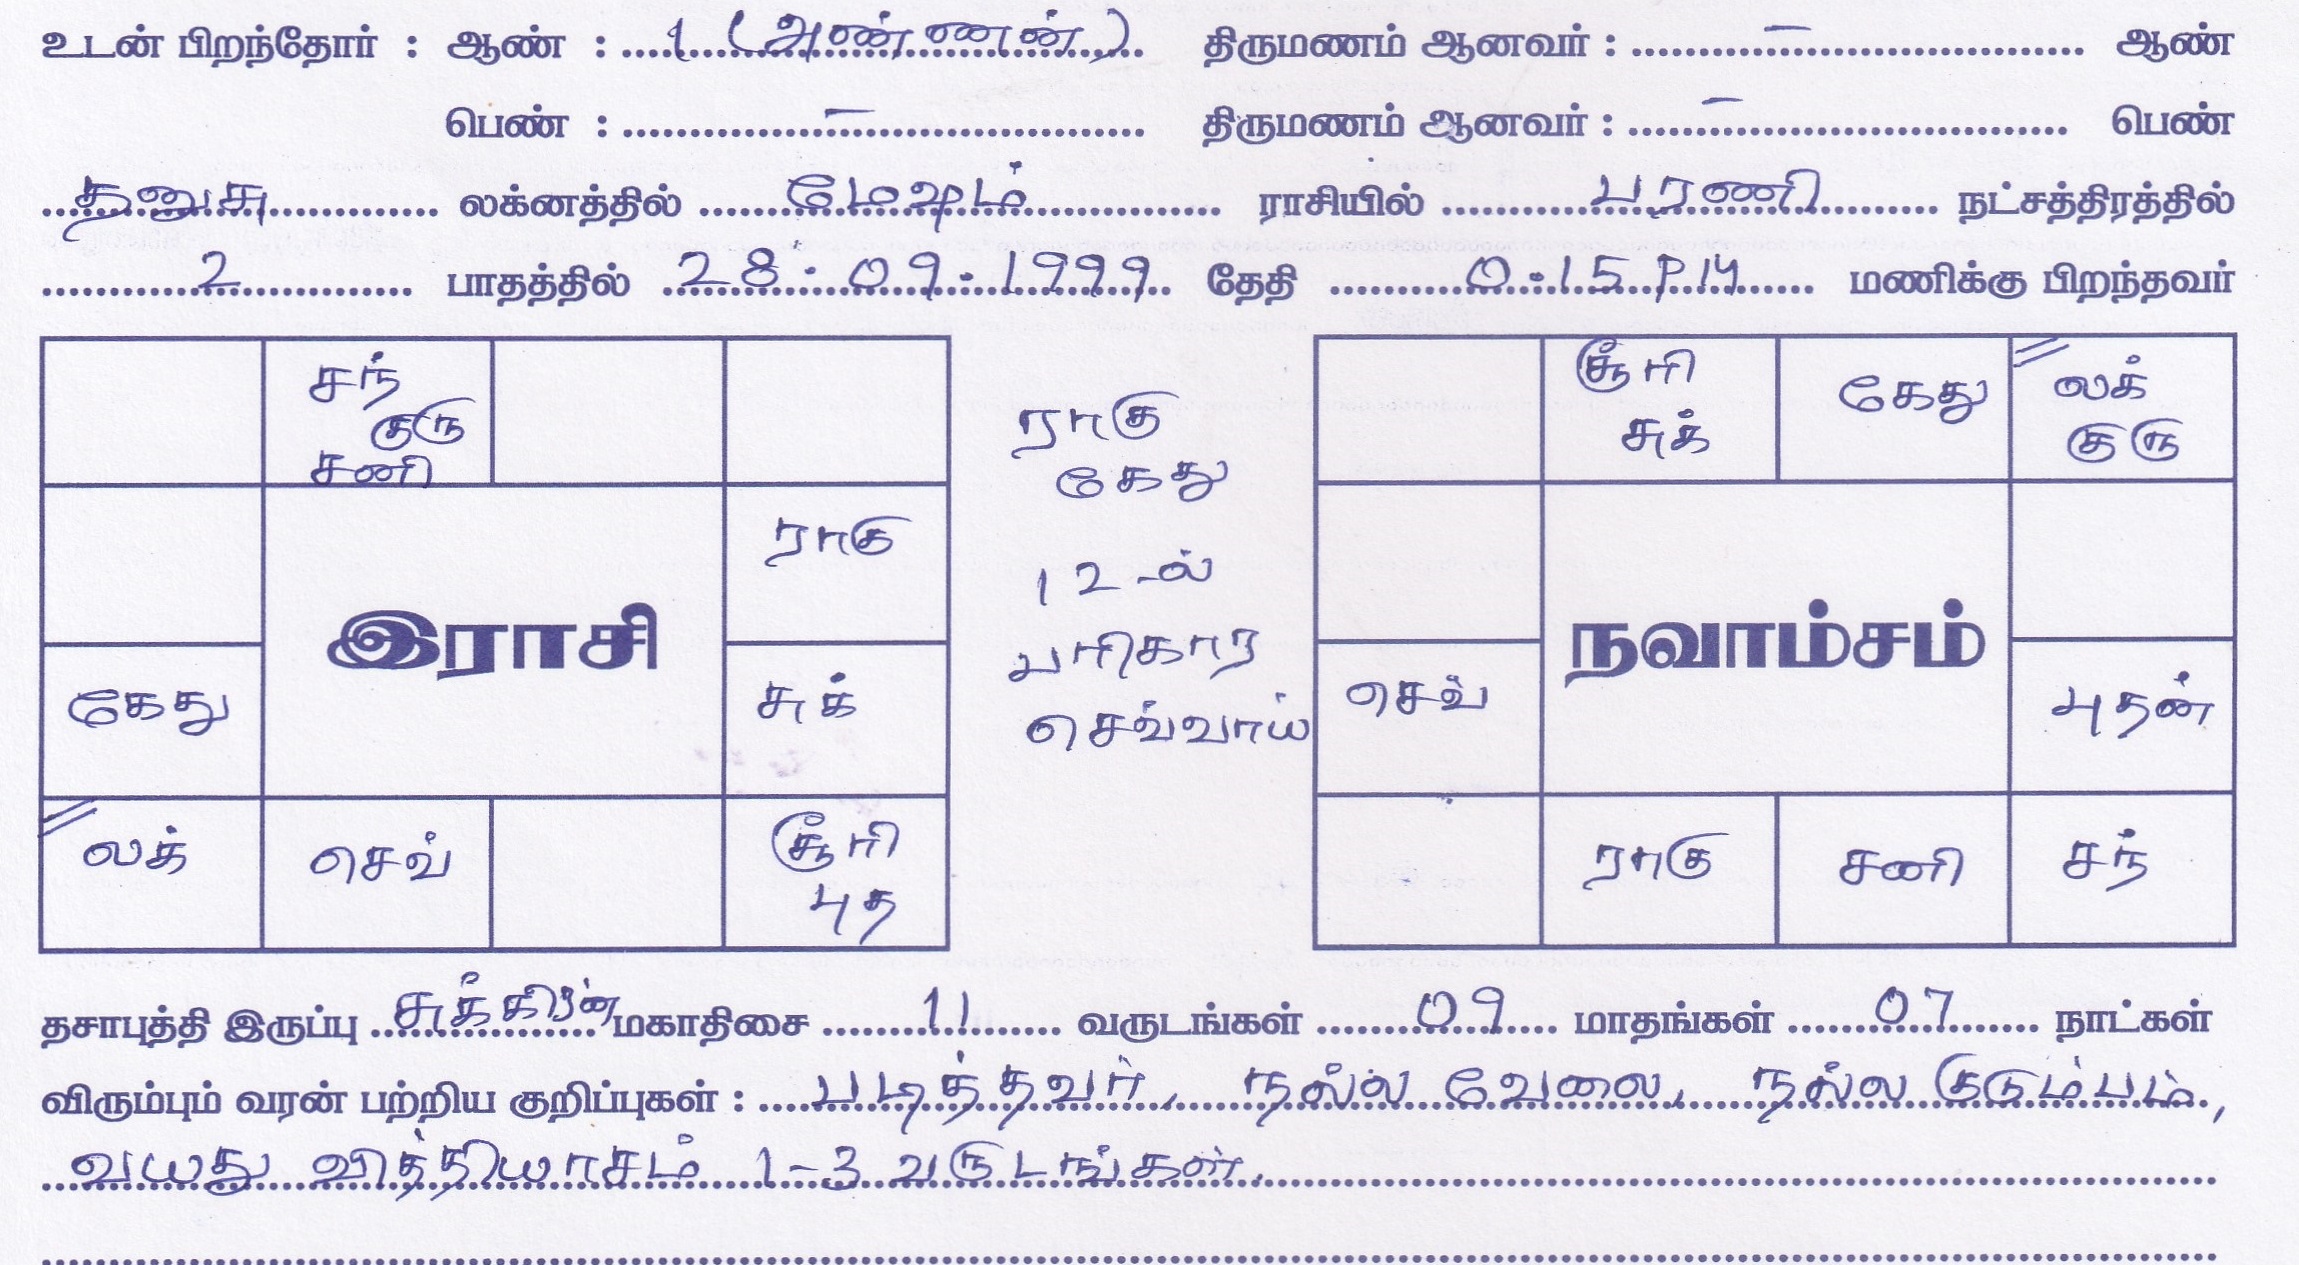 உடன் பிறந்தோர் : ஆண் : 1 (அண்ணன்) திருமணம் ஆனவர் : – ஆண்
பெண் : – திருமணம் ஆனவர் : – பெண்
தனுசு லக்னத்தில் மேஷம் ராசியில் பரணி நட்சத்திரத்தில்
2 பாதத்தில் 28.09.1999 தேதி 0.15 PM மணிக்கு பிறந்தவர்
சந்
குரு
சனி
ராகு
கேது
இராசி
சுக்
லக்
செவ்
சூரி
புத
ராகு
கேது
12-ல்
பரிகார
செவ்வாய்
சூரி
சுக்
கேது
லக்
குரு
செவ்
நவாம்சம்
புதன்
ராகு
சனி
சந்
தசாபுத்தி இருப்பு சுக்கிரன் மகாதிசை 11 வருடங்கள் 09 மாதங்கள் 07 நாட்கள்
விரும்பும் வரன் பற்றிய குறிப்புகள் : படித்தவர், நல்ல வேலை, நல்ல குடும்பம்,
வயது வித்தியாசம் 1-3 வருடங்கள்.